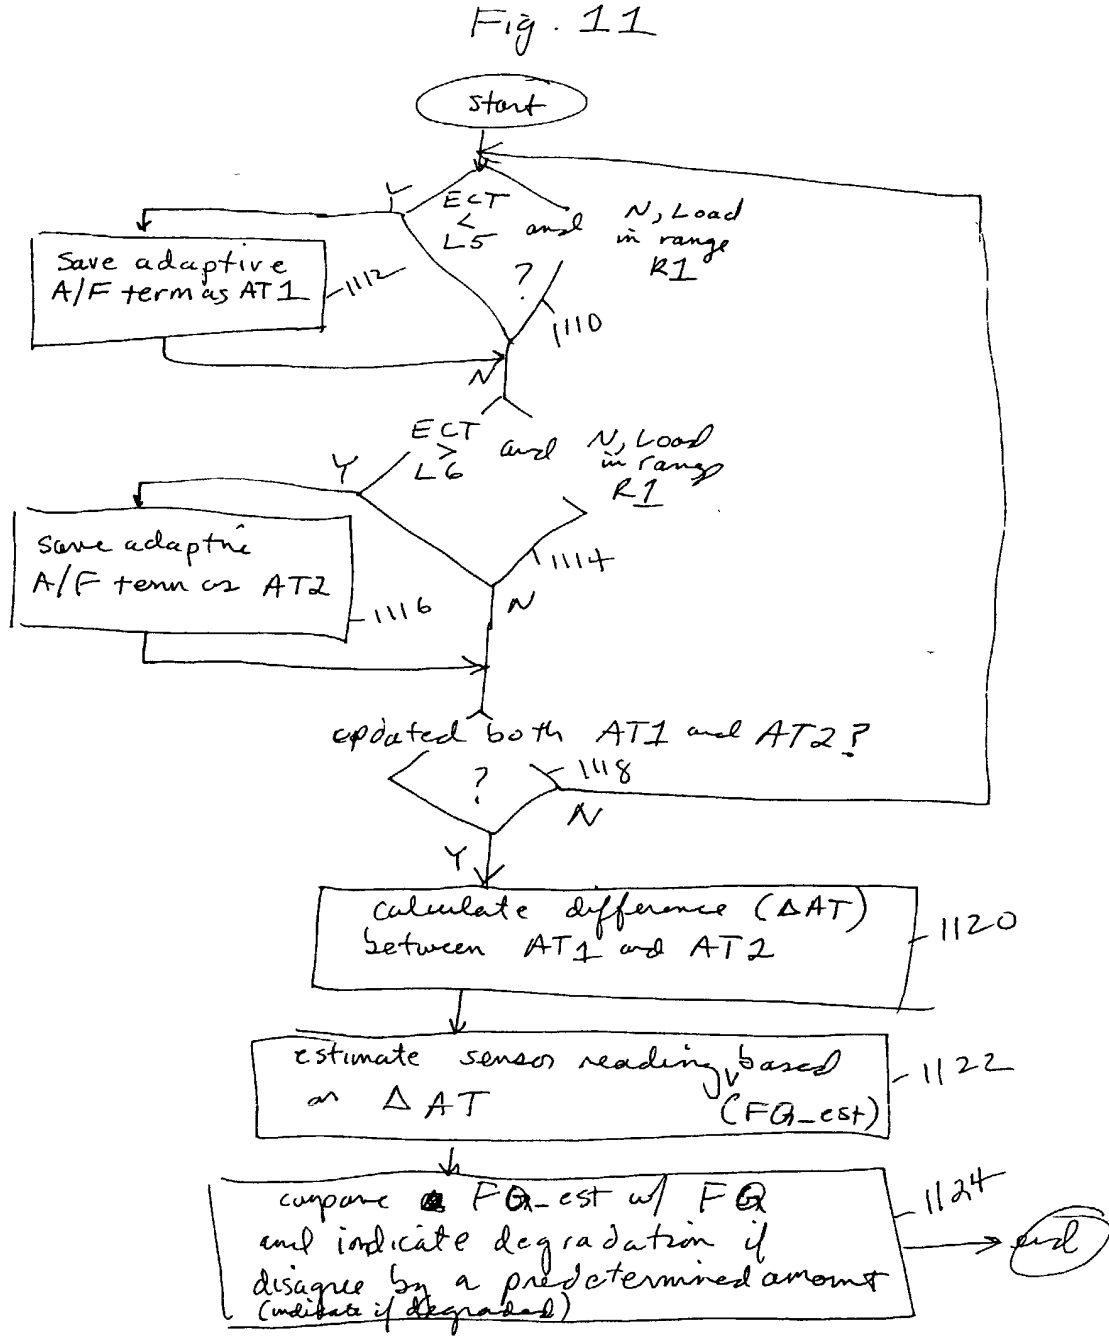 Fig. 11
start
Y
ECT
<
L5
and
N, Load
in range
R1
?
1110
save adaptive
A/F term as AT1
1112
N
ECT
>
L6
and
N, Load
in range
R1
Y
1114
save adaptive
A/F term as AT2
1116
N
updated both AT1 and AT2?
?
1118
N
Y
calculate difference (ΔAT)
between AT1 and AT2
1120
estimate sensor reading based
(FQ_est)
on ΔAT
1122
compare FQ_est w/ FQ
and indicate degradation if
disagree by a predetermined amount
(indicate if degraded)
1124
end